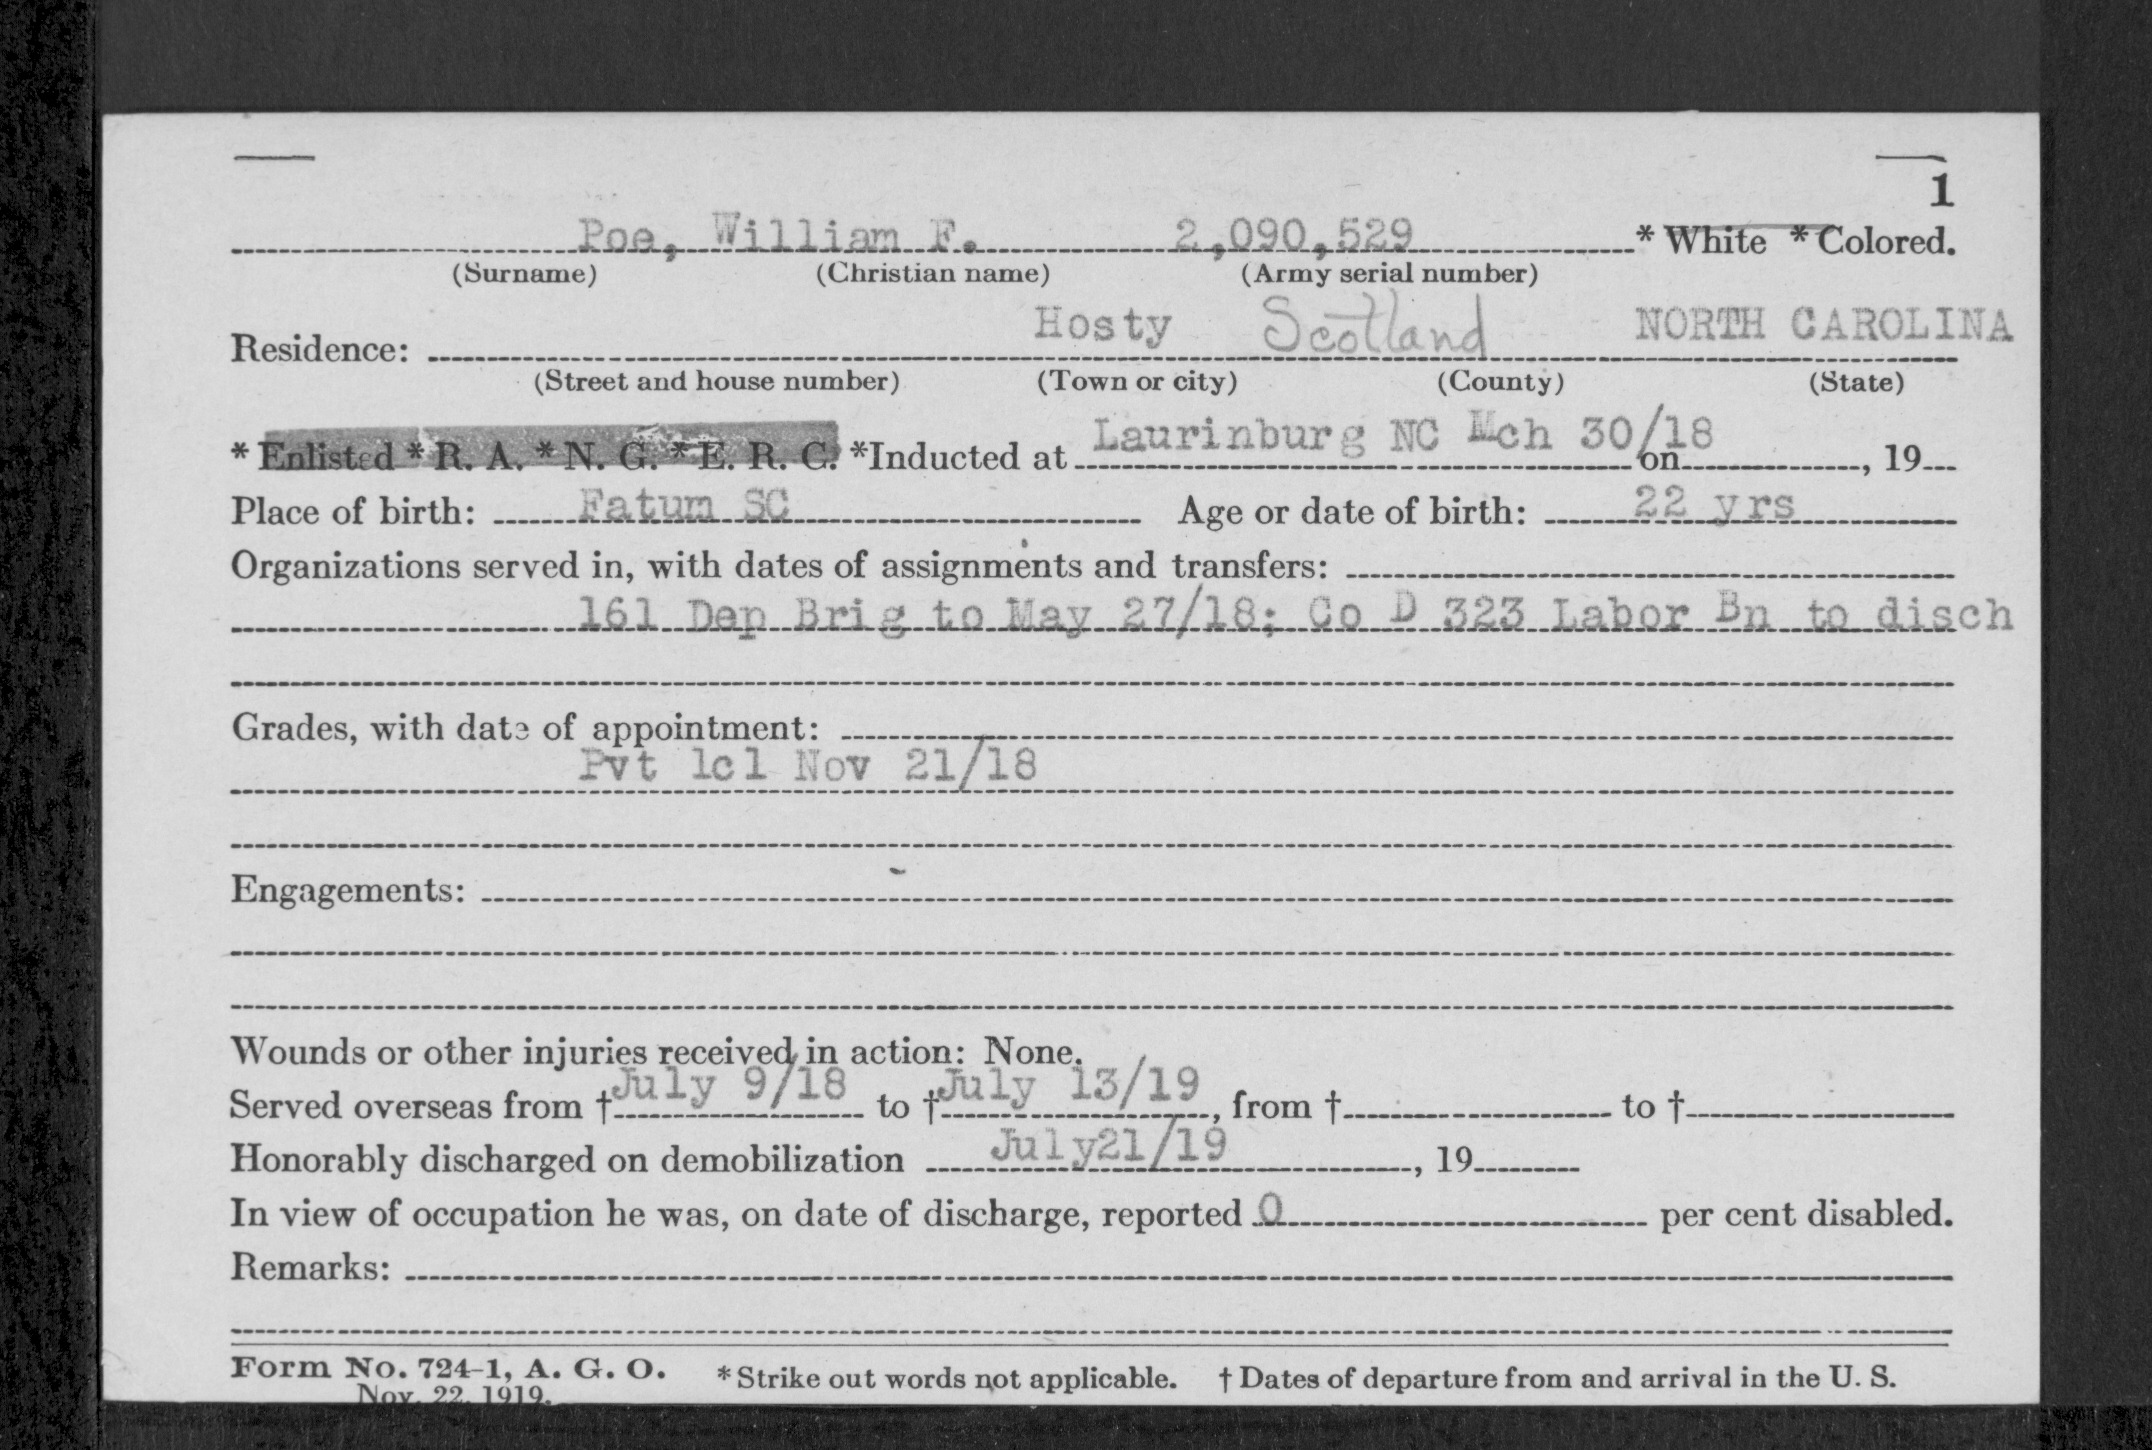 1
Poe, William F. 2,090,529 * White * Colored.
(Surname) (Christian name) (Army serial number)
Residence: Hosty Scotland NORTH CAROLINA
(Street and house number) (Town or city) (County) (State)
* Enlisted * R. A. * N. G. * E. R. C. *Inducted at Laurinburg NC Mch 30/18 on , 19
Place of birth: Fatum SC Age or date of birth: 22 yrs
Organizations served in, with dates of assignments and transfers:
161 Dep Brig to May 27/18; Co D 323 Labor Bn to disch
Grades, with date of appointment:
Pvt 1cl Nov 21/18
Engagements:
Wounds or other injuries received in action: None.
Served overseas from † July 9/18 to † July 13/19, from † to †
Honorably discharged on demobilization July21/19, 19
In view of occupation he was, on date of discharge, reported 0 per cent disabled.
Remarks:
Form No. 724-1, A. G. O. * Strike out words not applicable. † Dates of departure from and arrival in the U. S.
Nov. 22, 1919.